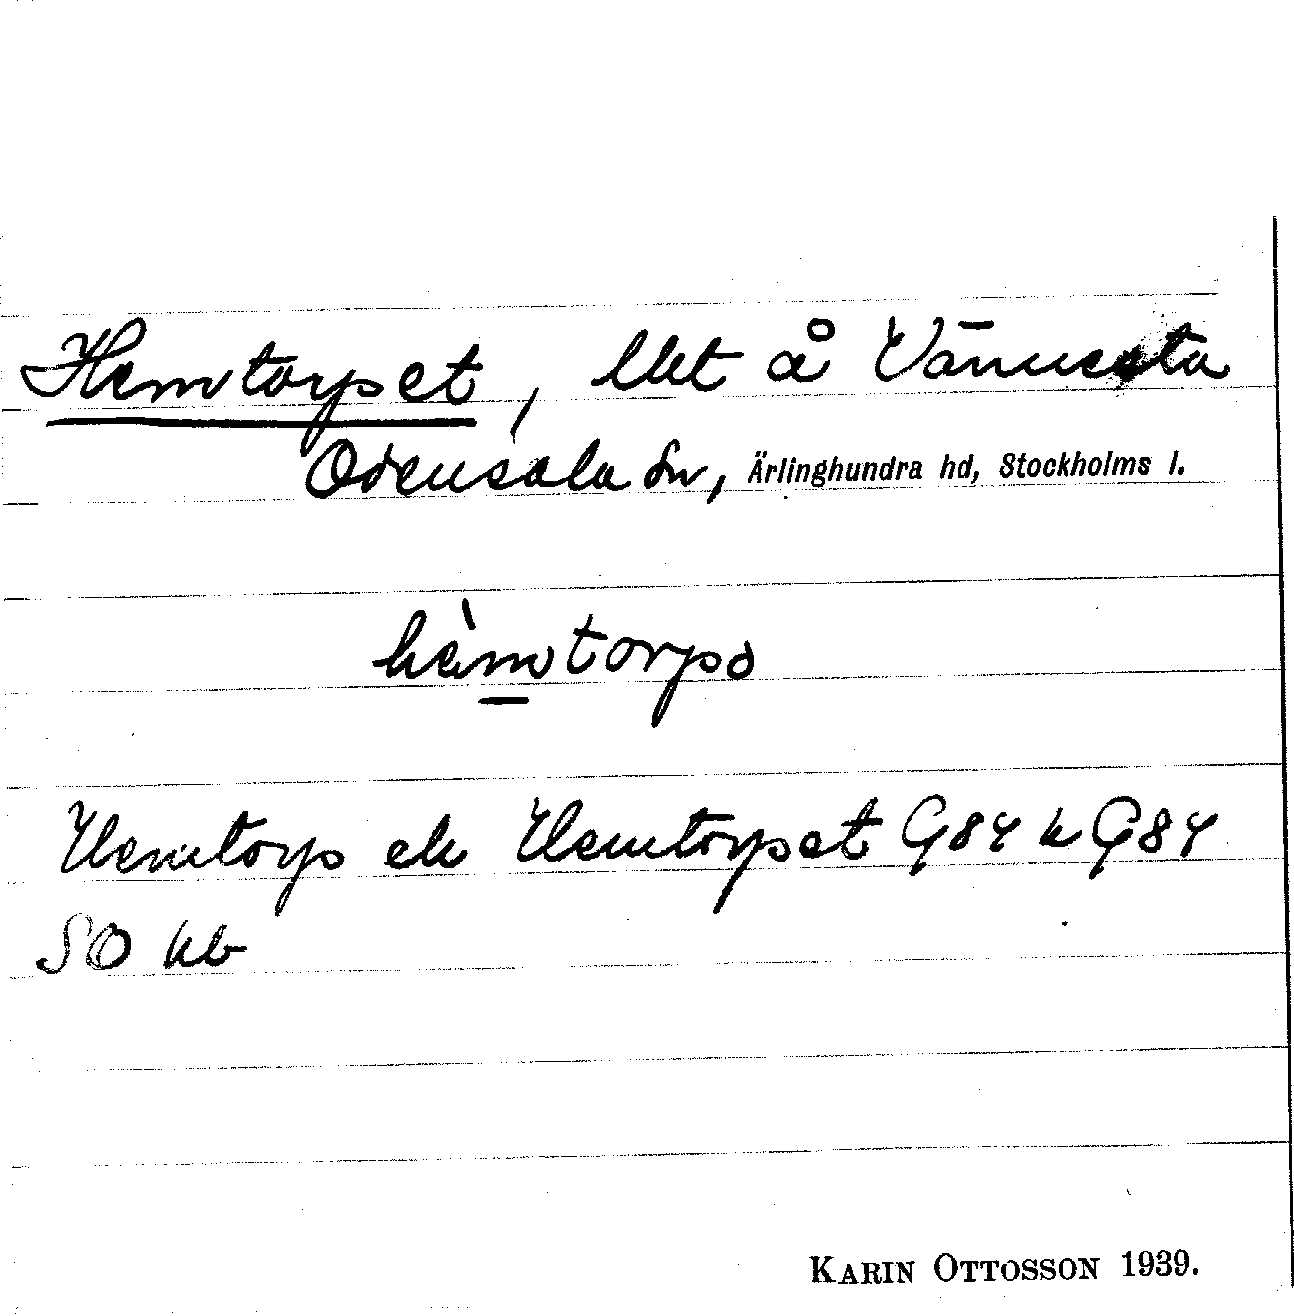 Hemtorpet, lht å Vännesta
Odensala sn, Ärlinghundra hd, Stockholms l.
hèmtorpə
Hemtorp el. Hemtorpet G84 k G84
SO kb
KARIN OTTOSSON 1939.